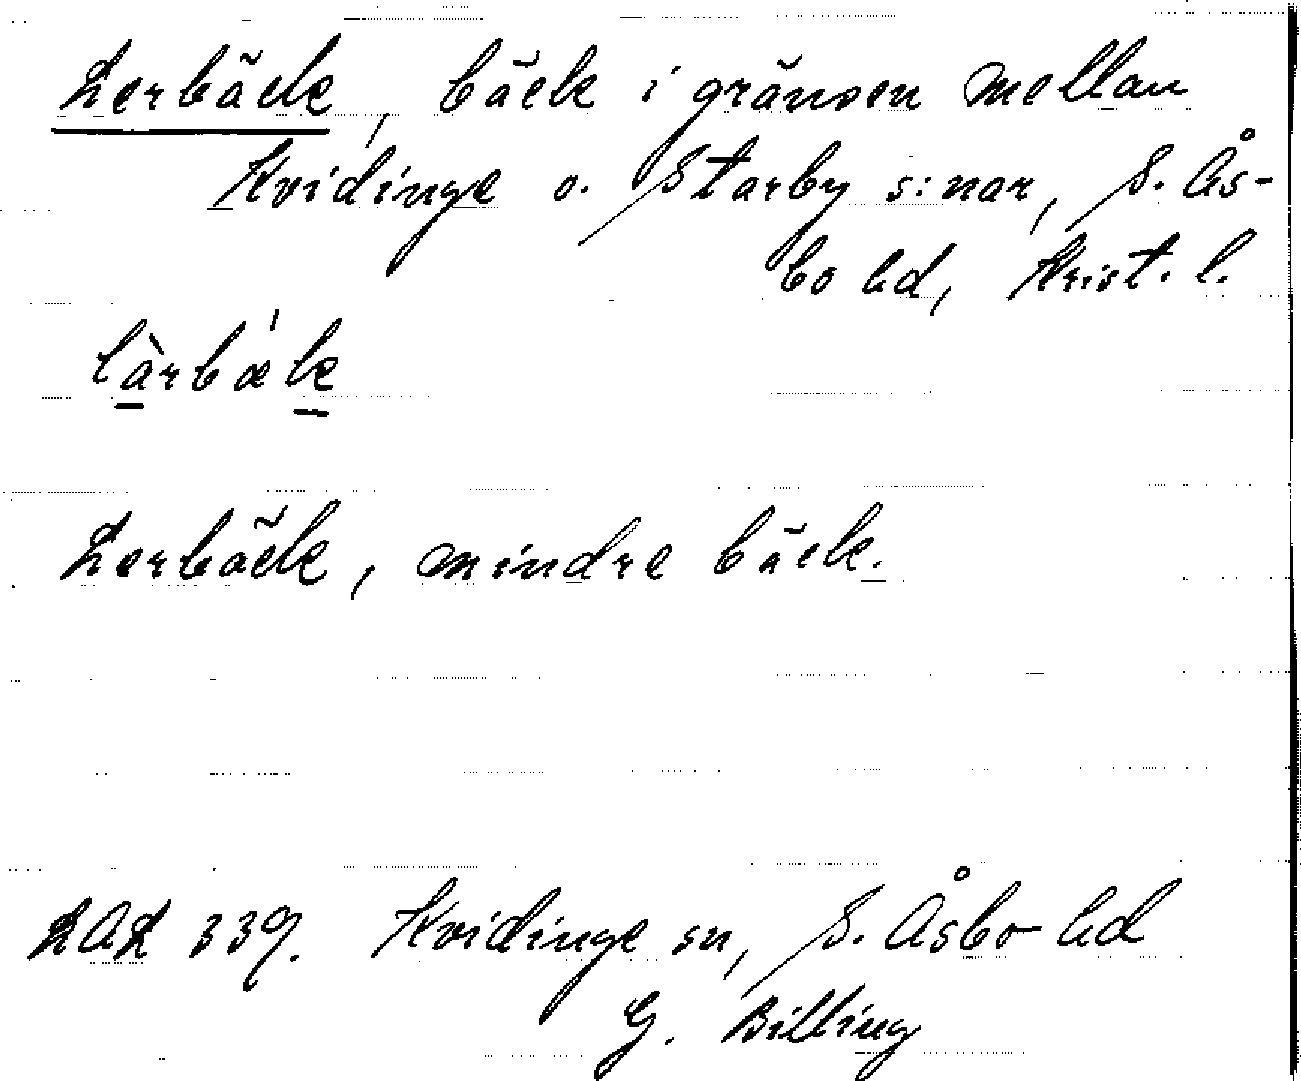 Lerbäck, bäck i gränsen mellan
Kvidinge o. Starby s:nar, S. Ås-
bo hd, Krist. l.
làrbæ'k
Lerbäck, mindre bäck.
LAL 339. Kvidinge sn, S. Åsbo hd
G. Billing